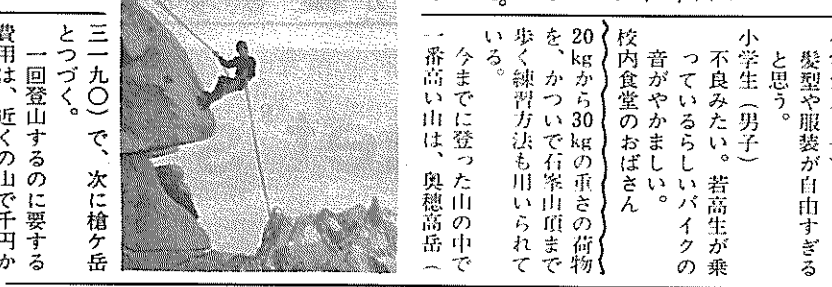 髪型や服装が自由すぎる
と思う。
小学生（男子）
不良みたい。若高生が乗
っているらしいバイクの
音がやかましい。
校内食堂のおばさん
20kgから30kgの重さの荷物
を、かついで石峯山頂まで
歩く練習方法も用いられて
いる。
今までに登った山の中で
一番高い山は、奥穂高岳（
三一九〇）で、次に槍ケ岳
とつづく。
一回登山するのに要する
費用は、近くの山で千円か